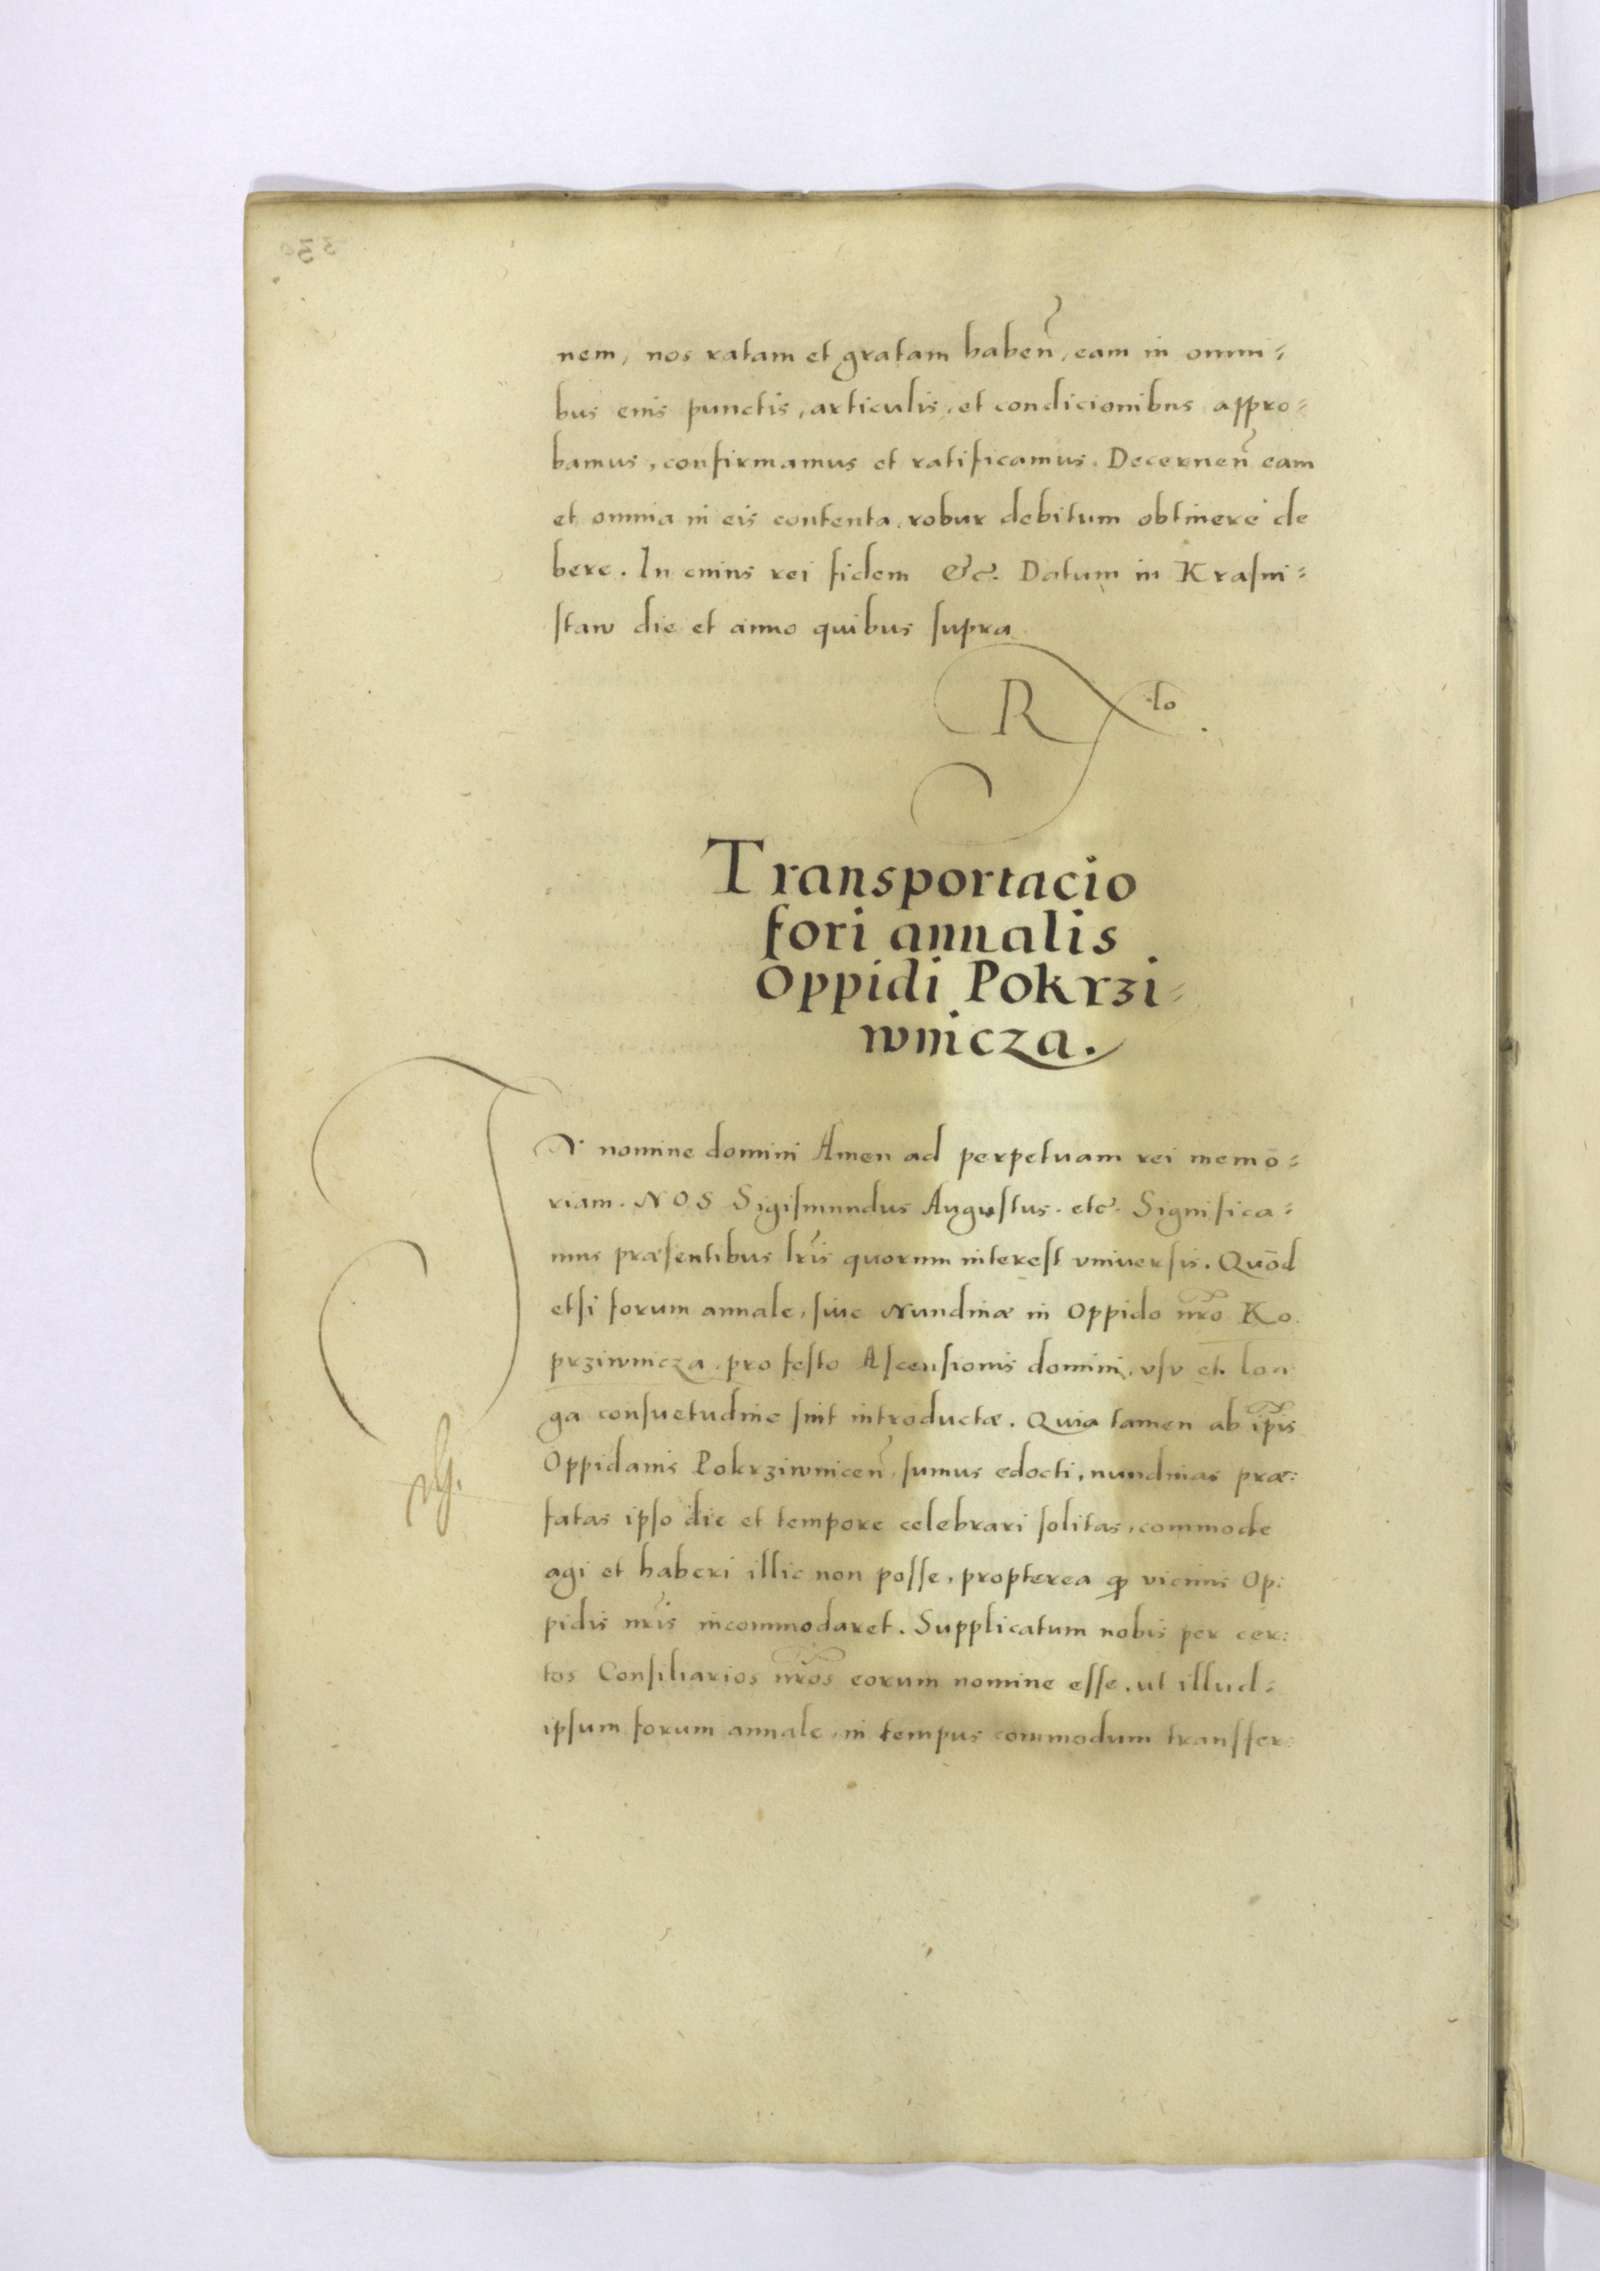 nem, nos ratam et gratam haben̄, eam in omni=
bus eius punctis, articulis, et condicionibus appro=
bamus, confirmamus et ratificamus. Decernen̄ eam
et omnia in eis contenta, robur debitum obtinere de
bere. In cuius rei fidem &c. Datum in Krasni=
staw die et anno quibus supra
R to.
Transportacio
fori annalis
Oppidi Pokrzi=
wnicza.
IN nomine domini Amen ad perpetuam rei memo=
riam. NOS Sigismundus Augustus. etc. Significa=
mus præsentibus lr̄is quorum interest vniuersis. Quōd
etsi forum annale, siue Nundinæ in Oppido nr̄o Ko
prziwnicza, pro festo Ascensionis domini, vsu et lon
ga consuetudine sint introductæ. Quia tamen ab ip̄is
Oppidanis Pokrziwnicen̄, sumus edocti, nundinas præ:
fatas ipso die et tempore celebrari solitas, commode
agi et haberi illic non posse, propterea ꝙ vicinis Op:
pidis nr̄is incommodaret. Supplicatum nobis per cer:
tos Consiliarios nr̄os eorum nomine esse, ut illud=
ipsum forum annale, in tempus commodum transfer: